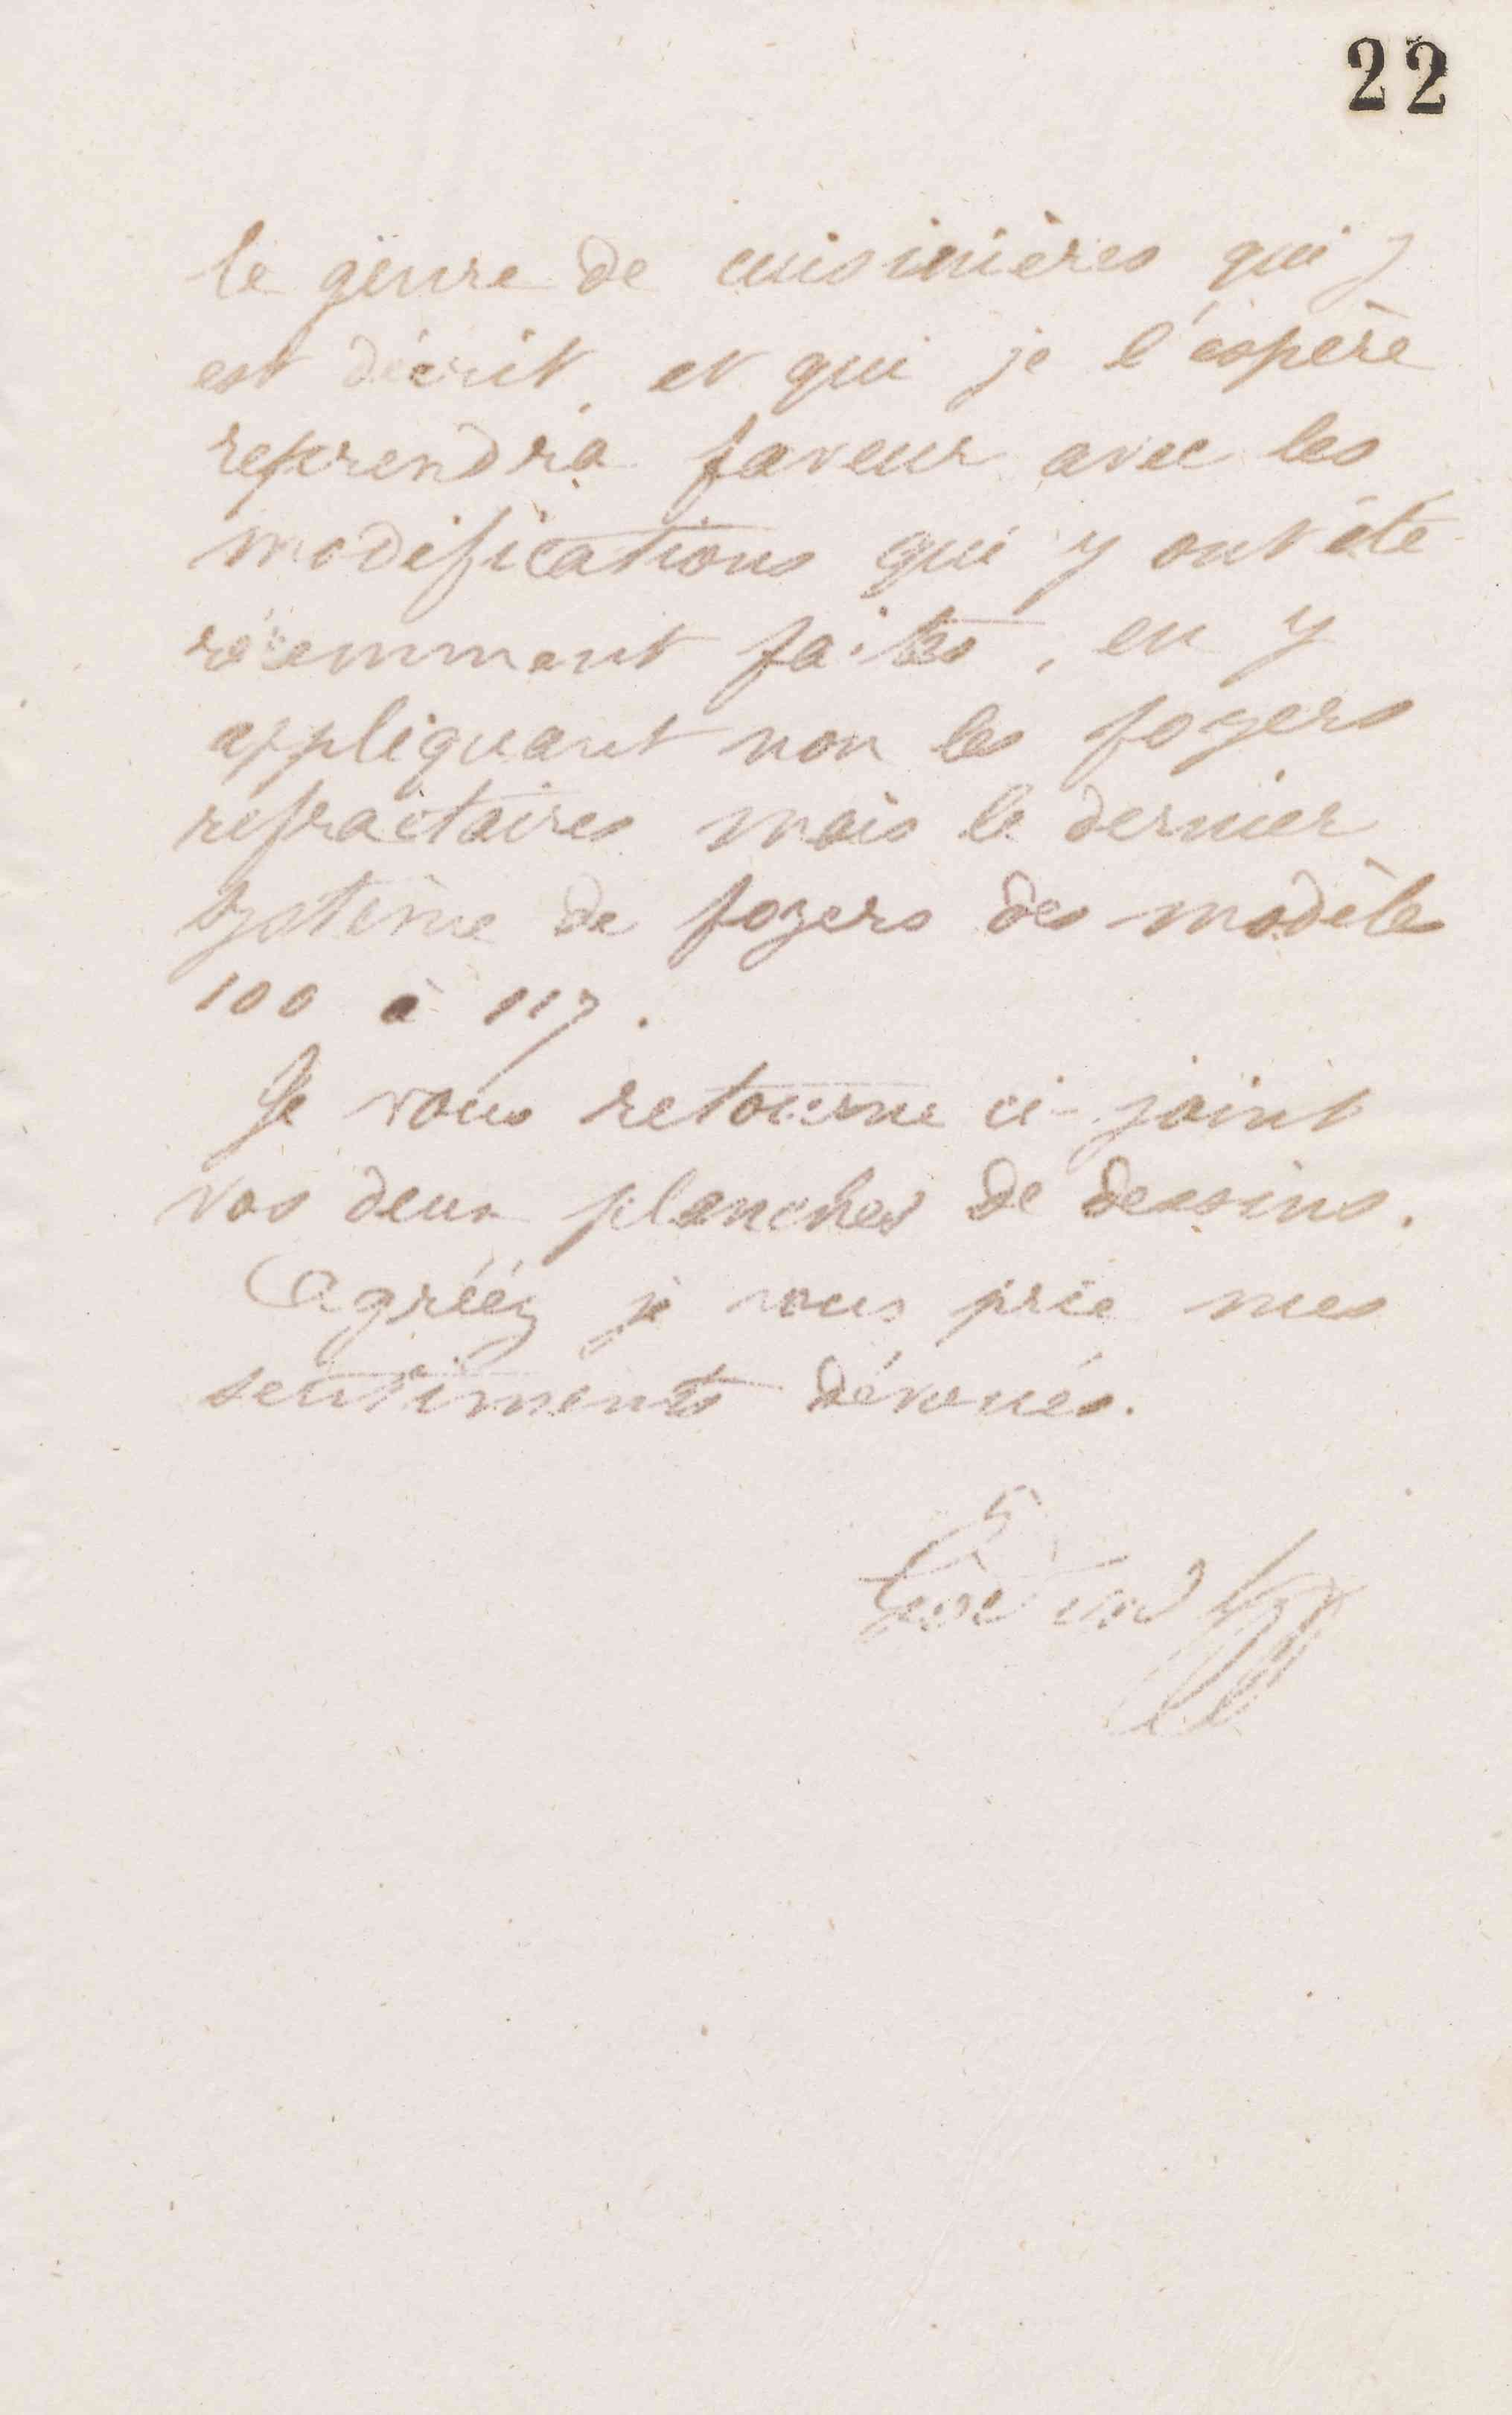 22
le genre de cuisinières qui y
est décrit, et qui je l'éspère
reprendra faveur avec les
modifications qui y ont été
récemment faites, en y
appliquant non les foyers
réfractaires mais le dernier
système de foyers des modèles
100 à 117.
Je vous retourne ci-joint
vos deux planches de dessins.
Agréez je vous prie mes
sentiments dévoués.